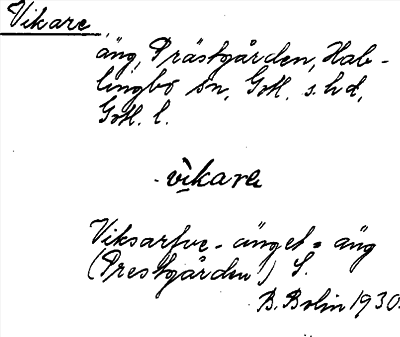 Vikare
äng, Prästgården, Hab-
lingbo sn, Gotl. s. hd,
Gotl. l.
vikare
Viksarfve-änget = äng
(Prestgården) S.
B. Bolin 1930.